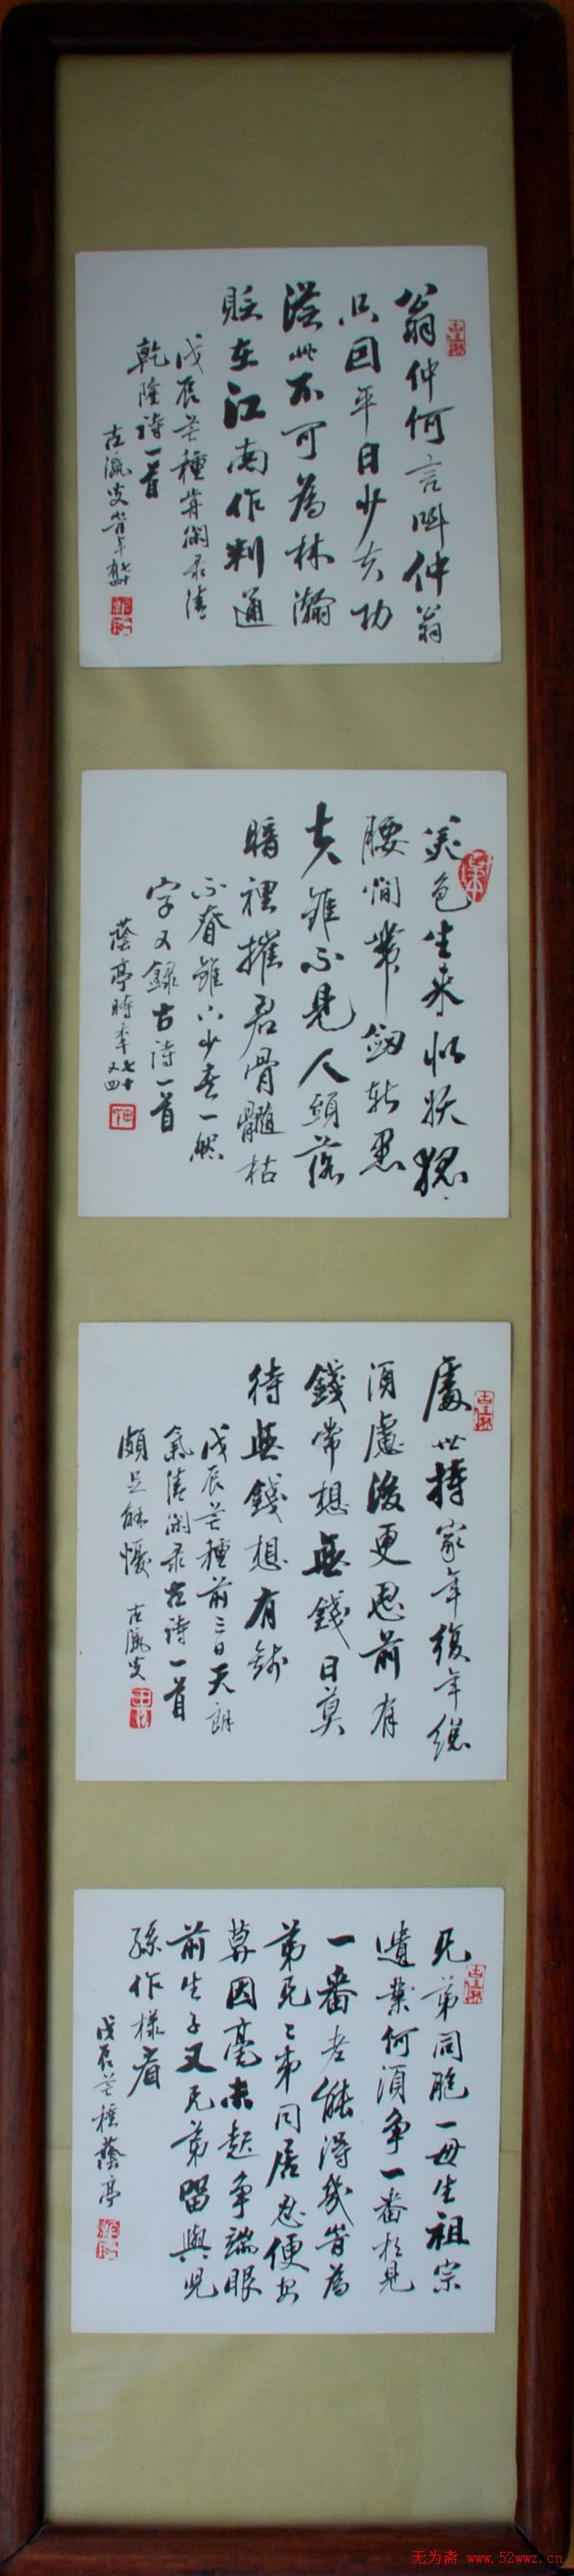 翁仲何言叫仲翁
只因平日少夫功
從此不可為林瀚
貶在江南作判通
戊辰芒種前閑录清
乾隆诗一首
古瀛叟
美色生来似妖狐
腰間帶劔斩愚
夫雖不見人頭落
暗裡摧君骨髓枯
不眷雖只少去一然
字又録古诗一首
蔭亭時年七十又四
處世持家年復年總
須慮後更思前有
錢常想無錢日莫
待無錢想有錢
戊辰芒種前三日天朗
氣清閑录古诗一首
頗足解懮 古瀛叟
兄弟同胞一母生祖宗
遺業何須争一番相見
一番老能得幾時為
弟兄兄弟同居忍便安
莫因毫末起争端眼
前生子又兄弟留與兒
孫作樣看
戊辰芒種蔭亭
无为斋 www.52wwz.cn